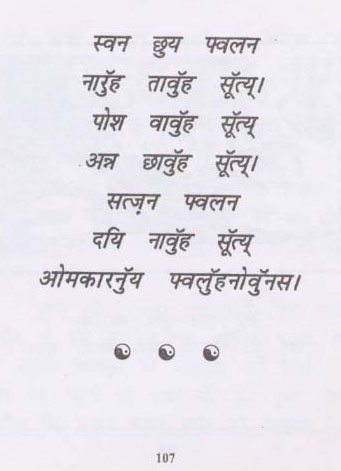 स्वन छुय फ्वलन
नारुॅह तावुॅह सूॅत्य्।
पोश वावुॅह सूॅत्य्
अन्न छावुॅह सूॅत्य्।
सत्ज़न फ्वलन
दयि नावुॅह सूॅत्य्
ओमकारनुॅय फ्वलुॅहनोवुॅनस।
107